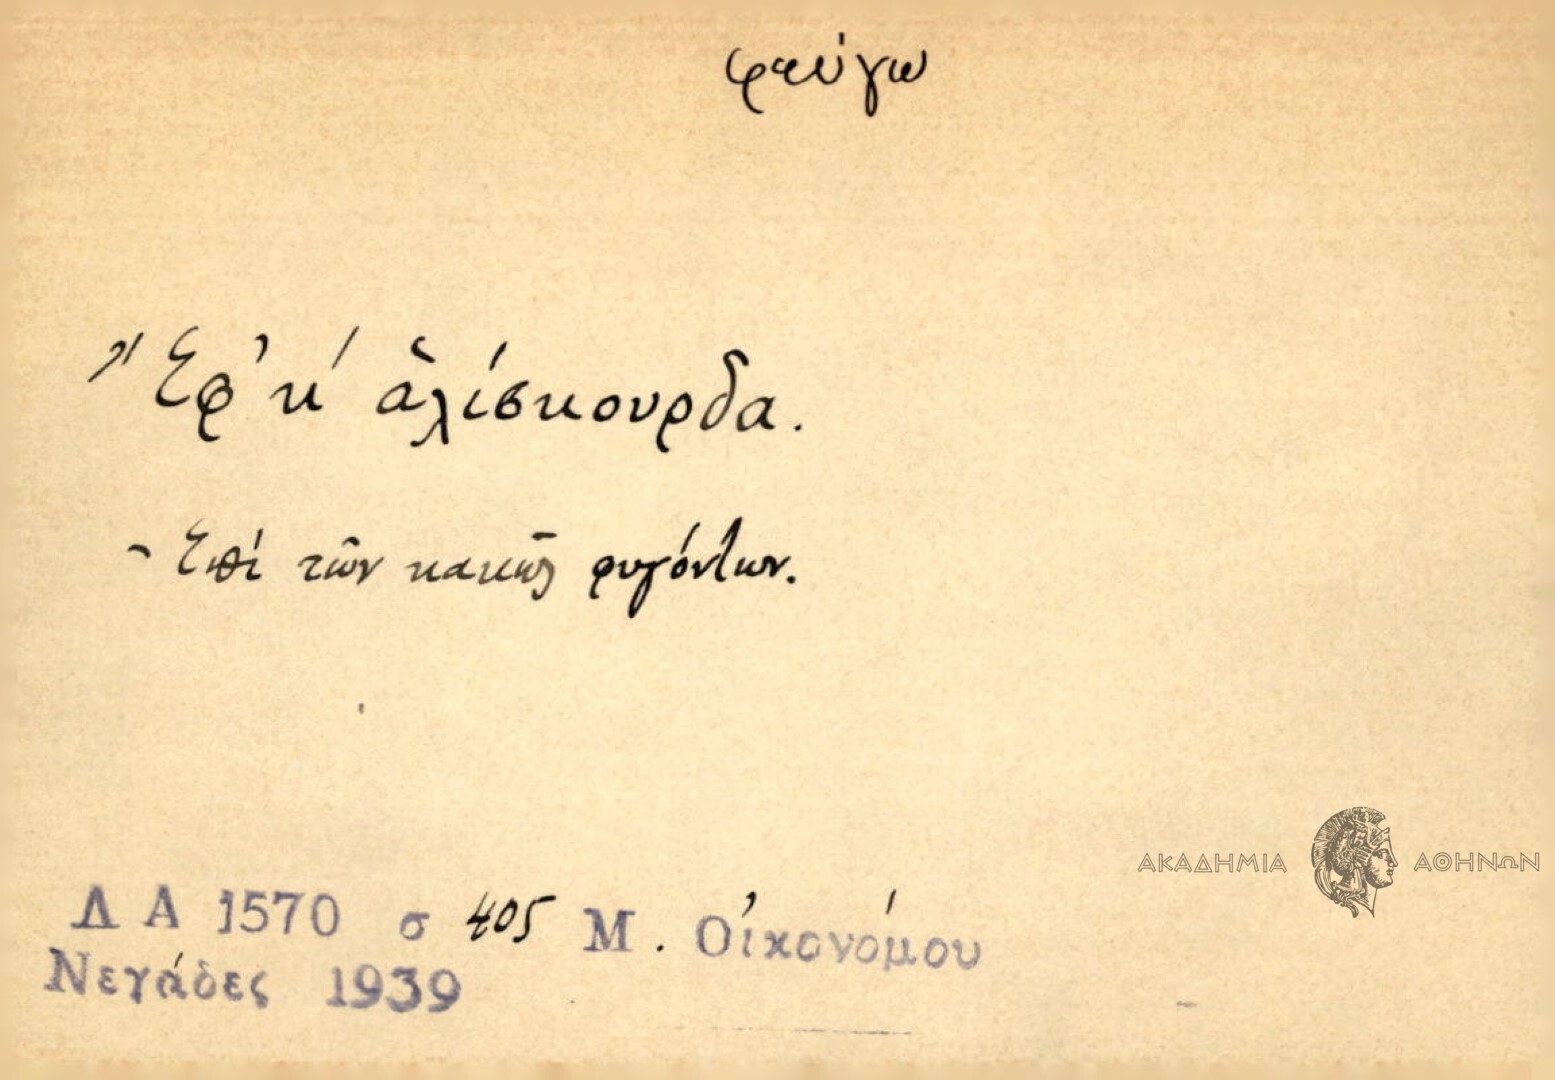 φεύγω
Ἔφ'κι ἀλίσκουρδα.
- Ἐπὶ τῶν κακῶς φυγόντων.
ΑΚΑΔΗΜΙΑ ΑΘΗΝΩΝ
Δ Α 1570 σ 405 Μ. Οἰκονόμου
Νεγάδες 1939